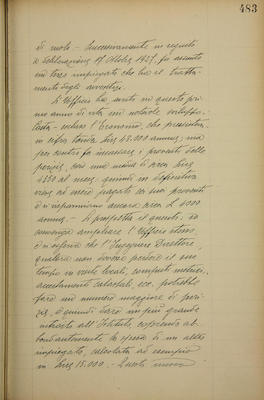 483
di ruolo. - Successivamente in seguito
a deliberazione 17 Ottobre 1927, fu assunto
un terzo impiegato che ha il tratta-
mento degli avventizi.
L'Ufficio ha avuto in questo pri-
mo anno di vita un notevole sviluppo.
- escluso l'Economo, che presenta
in cifra tonda Lire 48.000 annue; ma
per contro fa incassare i proventi delle
perizie, con una media di circa Lire
al mese, quindi in definitiva
viene ad essere pagato coi suoi proventi
e si risparmiano ancora circa L.
annue. - Si prospetta il quesito: se
convenga ampliare l'Ufficio stesso
e si osserva che l'Ingegnere Direttore,
qualora non dovesse perdere il suo
tempo in visite locali, computi metrici,
accertamenti catastali, ecc. potrebbe
fare un numero maggiore di peri-
zie, e quindi dare un più grande
introito all'Istituto, coprendo ab-
bondantemente la spesa di un altro
impiegato, calcolata ad esempio
in Lire 15.000. - Questo nuovo